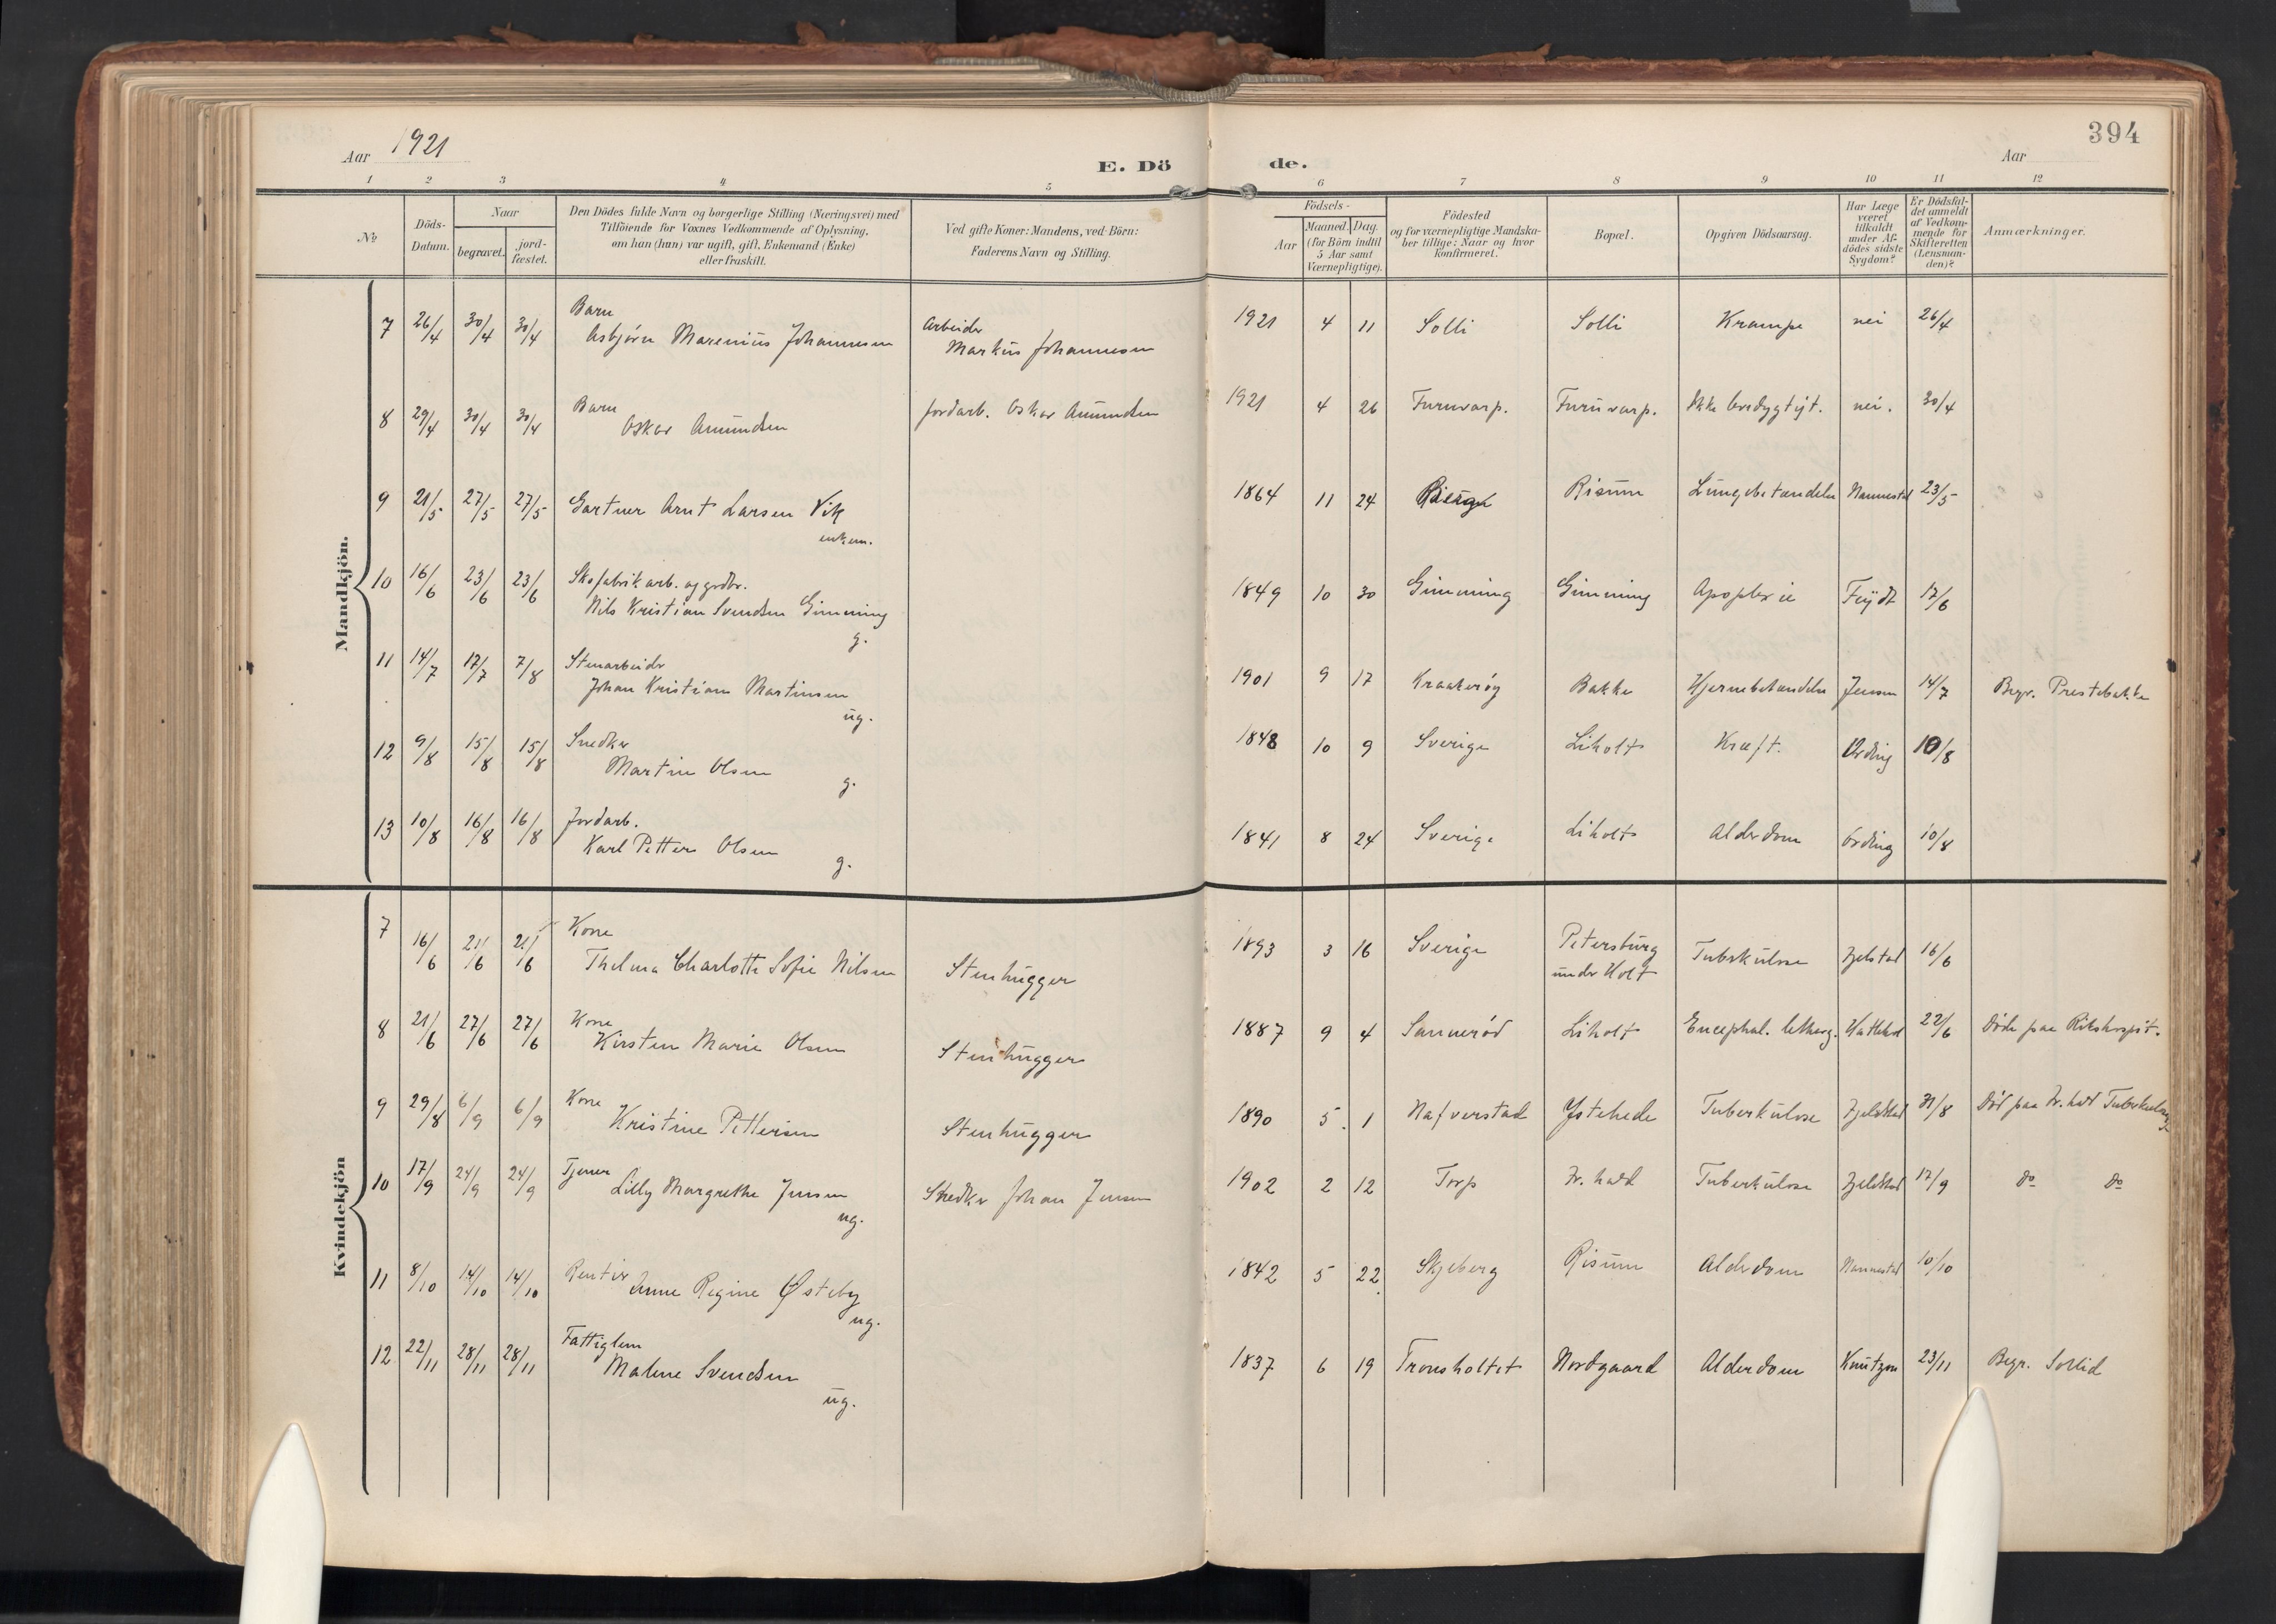 394
Aar 1921
E. Dö de.
Aar
1 2 3 4 5 6 7 8 9 10 11 12
No
Döds-
Datum.
Naar
begravet.
jord-
fæstet.
Den Dödes fulde Navn og borgerlige Stilling (Næringsvei) med
Tilföiende for Voxnes Vedkommende af Oplysning,
om han (hun) var ugift, gift, Enkemand (Enke)
eller fraskilt.
Ved gifte Koner: Mandens, ved Börn:
Faderens Navn og Stilling.
Födsels-
Aar
Maaned. Dag.
(for Börn indtil
5 Aar samt
Værnepligtige).
Födested
og for værnepligtige Mandska-
ber tillige: Naar og hvor
konfirmeret.
Bopæl.
Opgiven Dödsaarsag.
Har Læge
været
tilkaldt
under Af-
dödes sidste
Sygdom?
Er Dödsfal-
det anmeldt
af Vedkom-
mende for
Skifteretten
(Lensman-
den)?
Anmærkninger.
Mandkjön.
7 26/4 30/4 30/4 Barn
Asbjørn Marenius Johannesen
Arbeider
Markus Johannesen
1921 4 11 Solli Solli Krampe nei 26/4
8 29/4 30/4 30/4 Barn
Oskar Amundsen
Jordarb. Oskar Amundsen
1921 4 26 Furuvarp. Furuvarp. Ikke levedygtigt. nei. 30/4
9 21/5 27/5 27/5 Gartner Arnt Larsen Vik
enkem.
1864 11 24 Risum Lungebetændelse Nannestad 23/5
10 16/6 23/6 23/6 Skofabrikarb. og grdbr.
Nils Kristian Svendsen Gimming
g.
1849 10 30 Gimming Gimming Apoplexie Feydt 17/6
11 14/7 17/7 7/8 Stenarbeider
Johan Kristian Martinsen
ug.
1901 9 17 Kraakerøy Bakke Hjernebetændelse Jensen 14/7 Begr. Prestebakke
12 9/8 15/8 15/8 Snedker
Martin Olsen
g.
1848 10 9 Sverige Liholt Kræft. Ording 10/8
13 10/8 16/8 16/8 Jordarb.
Karl Petter Olsen
g.
1841 8 24 Sverige Liholt Alderdom Ording 10/8
Kvindekjön
7 16/6 21/6 21/6 Kone
Thelma Charlotte Sofie Nilsen
Stenhugger
1893 3 16 Sverige Petersburg
under Holt
Tuberkulose 16/6
8 21/6 27/6 27/6 Kone
Kirsten Marie Olsen
Stenhugger
1887 9 4 Sannerød Liholt Encephal. letharg. 22/6 Døde paa Rikshospit.
9 29/8 6/9 6/9 Kone
Kristine Pettersen
Stenhugger
1890 5 1 Nafverstad Ystehede Tuberkulose 31/8 Død paa Fr.hald
10 17/9 24/9 24/9 Tjener
Lilly Margrethe Jensen
ug.
Snedker Johan Jensen
1902 2 12 Torp Fr. hald Tuberkulose 17/9 do do
11 8/10 14/10 14/10 Rentier
Anne Regine Østeby
ug.
1842 5 22 Skjeberg Risum Alderdom Nannestad 10/10
12 22/11 28/11 28/11 Fattiglem
Malene Svendsen
ug.
1837 6 19 Tronsholtet Nordgaard Alderdom Knutzon 23/11 Begr. Sollid